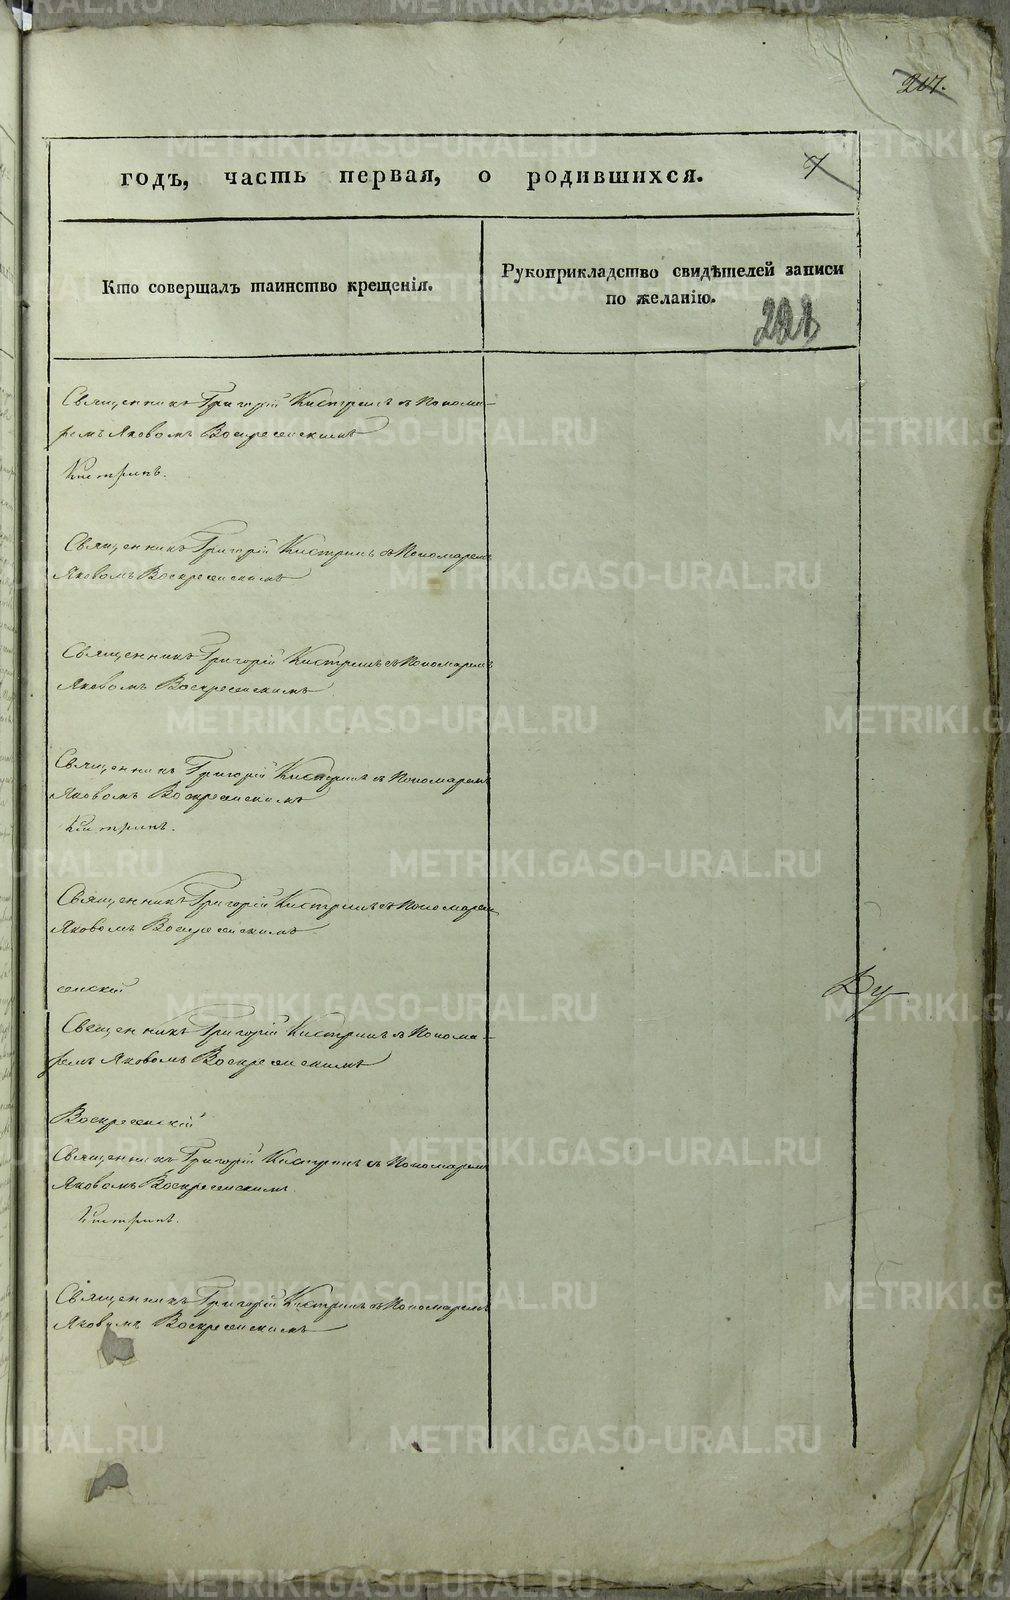 207.
годъ, часть первая, о родившихся.
7
Кто совершалъ таинство крещенія.
Рукоприкладство свидѣтелей записи
по желанію.
Священникъ Григорій Кистринъ съ Понома-
ремъ Яковомъ Воскресенскимъ
Кистринъ.
Священникъ Григорій Кистринъ съ Пономаремъ
Яковомъ Воскресенскимъ
Священникъ Григорій Кистринъ съ Пономаремъ
Яковомъ Воскресенскимъ
Священникъ Григорій Кистринъ съ Пономаремъ
Яковомъ Воскресенскимъ
Кистринъ.
Священникъ Григорій Кистринъ съ Пономаремъ
Яковомъ Воскресенскимъ
сенскій
Ду
Священникъ Григорій Кистринъ съ Понома-
ремъ Яковомъ Воскресенскимъ
Воскресенскій
Священникъ Григорій Кистринъ съ Пономаремъ
Яковомъ Воскресенскимъ
Кистринъ.
Священникъ Григорій Кистринъ съ Пономаремъ
Яковомъ Воскресенскимъ
METRIKI.GASO-URAL.RU